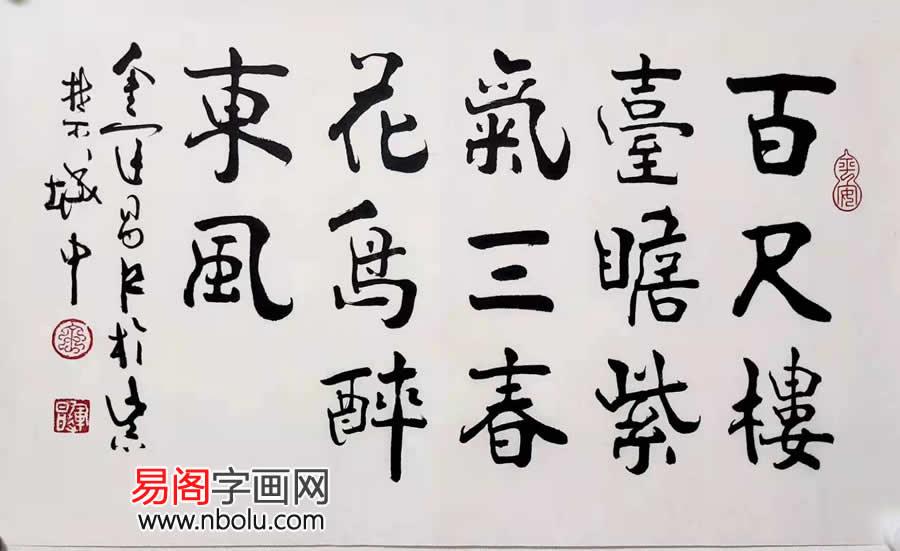 百尺樓
臺瞻紫
氣三春
花鳥醉
東風
金運昌 於紫
禁城中
易阁字画网
www.nbolu.com